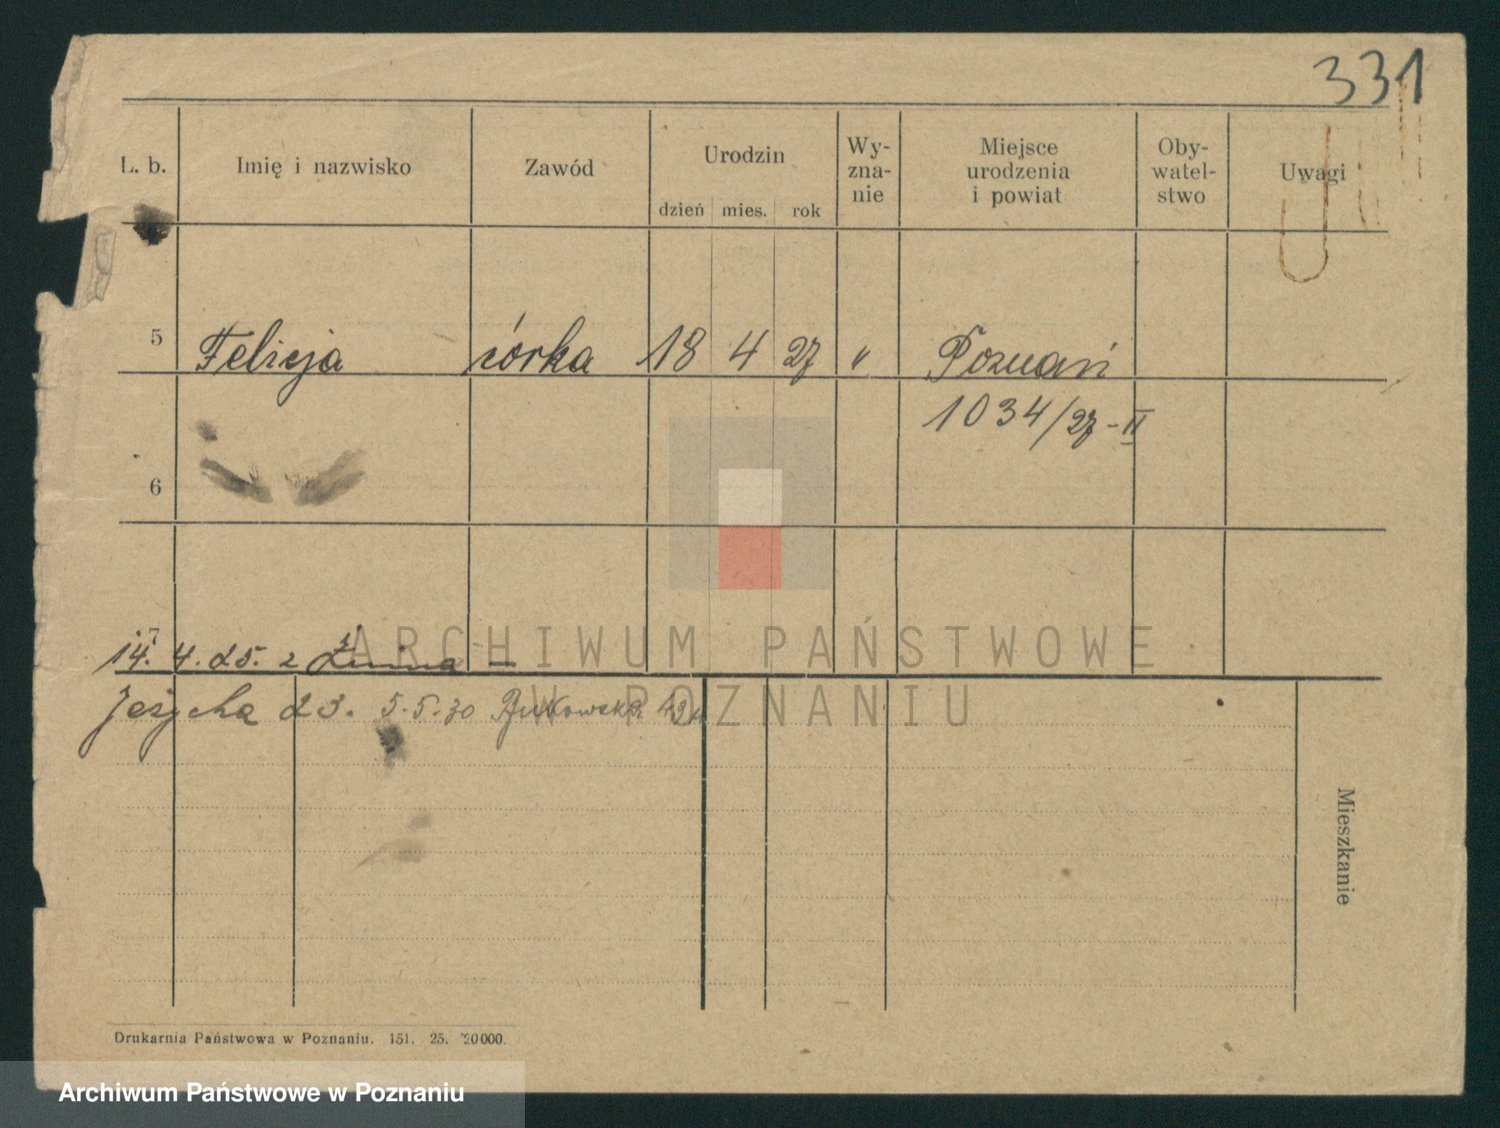 331
L. b. Imię i nazwisko Zawód Urodzin dzień mies. rok Wy-zna-nie Miejsce urodzenia i powiat Oby-watel-stwo Uwagi
5 Felicja córka 18 4 27 " Poznań
1034/27-II
6
7
14. 4. 25. z Żnina —
ARCHIWUM PAŃSTWOWE
Jeżycka 23. 5.5.30 Bukowska
W POZNANIU
Mieszkanie
Drukarnia Państwowa w Poznaniu. 151. 25. 20000.
Archiwum Państwowe w Poznaniu